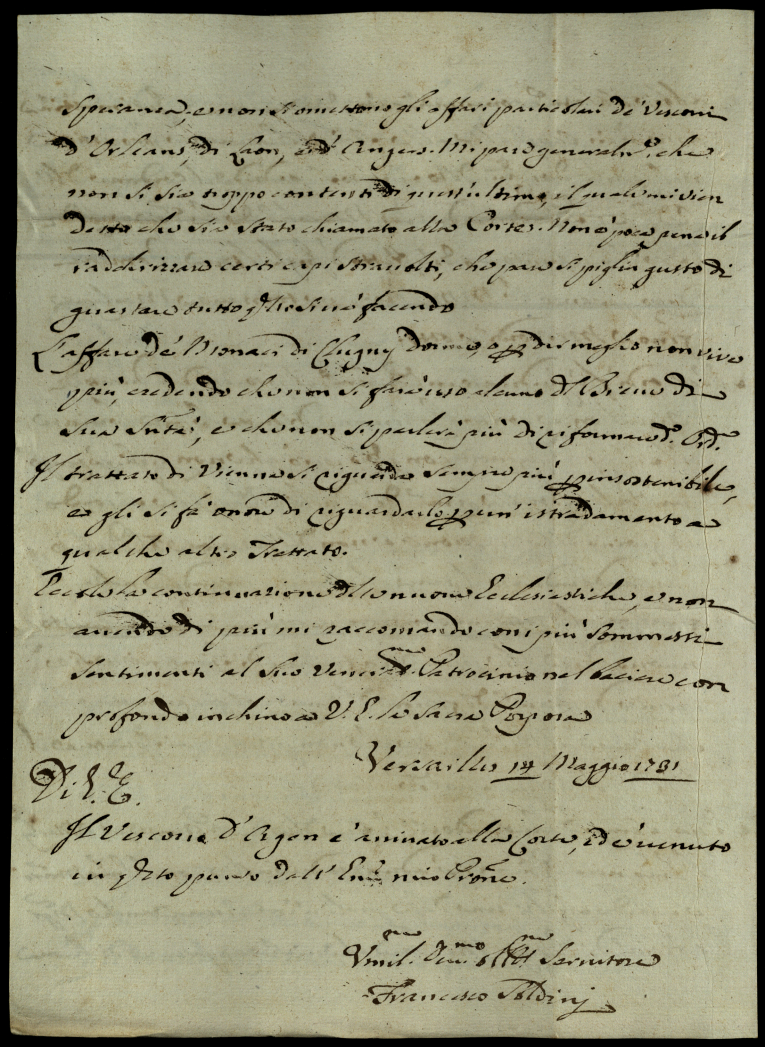 speranza, e non si omettono gli affari particolari de' Vescovi
d'Orleans, di Laon, e d'Angers. Mi pare generalm.e che
non si sia troppo contenti di quest'ultimo, il quale mi vien
detto che sia stato chiamato alla Corte. Non è poca pena il
radderizzare certi capi stravolti, che pare si piglin gusto di
guastare tutto q.llo si và facendo
L'affare de' Monaci di Clugny dorme, o p dir meglio non vive
più, credendo che non si farà uso alcuno dl Breve di
Sua Stità, e che non si parlerà più di riformare d.o Ord.e
Il trattato di Vienna si riguarda sempre più p insostenibile,
e gli si fà onore di riguardarlo p un' istradamento a
qualche altro Trattato.
Eccole la continuazione dlle nuove Ecclesiastiche, e non
avendo di più mi raccomando con i più sommessi
sentimenti al Suo Patrocinio nel baciare con
profondo inchino a V. E. la Sacra Porpora
Versailles 14 Maggio 1731
Di V. E.
Il Vescovo d'Agen è arrivato alla Corte, ed è venuto
in q.sto punto dall' Em.o mio Prone.
Vmil.mo Servitore
Francesco